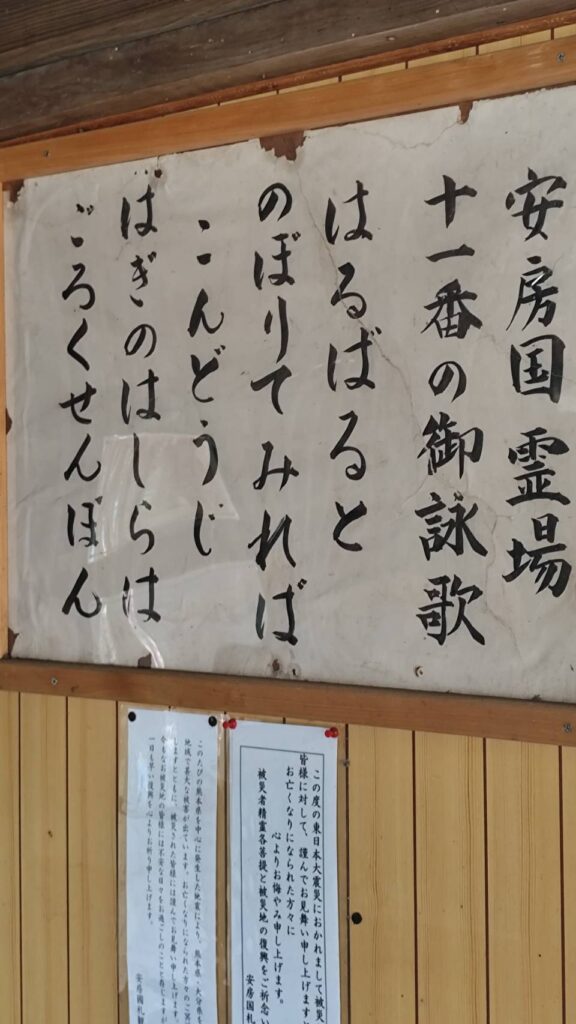 安房国霊場
十一番の御詠歌
はるばると
のぼりてみれば
こんどうじ
はぎのはしらは
ごろくせんぼん
この度の東日本大震災におかれまして被災
皆様に対して、謹んでお見舞い申し上げますと
お亡くなりになられた方々に
心よりお悔やみ申し上げます。
被災者精霊各菩提と被災地の復興をご祈念い
安房国札
このたびの熊本県を中心に発生した地震により、熊本県・大分県を
地域で甚大な被害が出ています。お亡くなりになられた方々のご冥
しますとともに、被災された皆様には謹んでお見舞い申し上げます。
今もなお被災地の皆様には不安な日々をお過ごしのことと存じますが
一日も早い復興を心よりお祈り申し上げます。
安房國札観